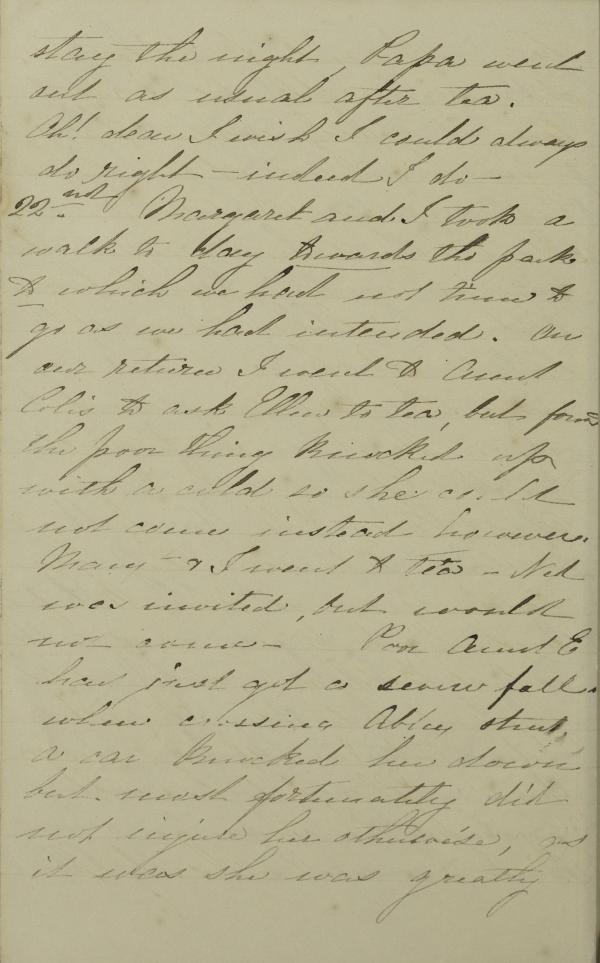 stay the night, Papa went
out as usual after tea.
Oh! dear I wish I could always
do right – indeed I do –
22nd Margaret and I took a
walk to day towards the park
to which we had not time to
go as we had intended. On
our return I went to Aunt
to ask Ellen to tea, but found
the poor thing knocked up
with a cold so she could
not come instead however
Mam & I went to tea – Ned
was invited, but would
not come – Poor Aunt E
has just got a severe fall.
when crossing Abbey street,
a car knocked her down
but most fortunately did
not injure her otherwise, as
it was she was greatly